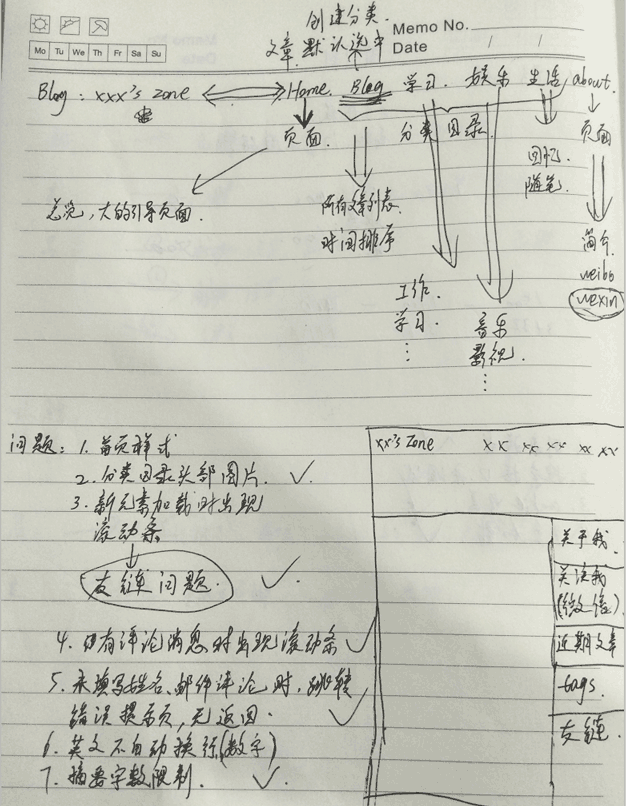 创建分类.
Memo No.
文章.默认选中
Date / /
Mo Tu We Th Fr Sa Su
Blog: xxx's zone Home. Blog 学习. 娱乐 生活 about
页面. 分类目录. 页面
回忆.
随笔.
总览,大的引导页面.
所有文章列表.
时间排序
简介.
weibo
wexin
工作.
学习.
⋮
音乐
影视.
⋮
问题: 1. 首页样式
2. 分类目录头部图片. ✓
3. 新元素加载时出现
滚动条
友链问题. ✓
4. 仍有评论消息时出现滚动条 ✓
5. 未填写姓名、邮件评论时,跳转
错误提示页,无返回. ✓
6. 英文不自动换行(数字)
7. 摘要字数限制. ✓
xx's zone xx xx xx xx xx
关于我.
关注我
(微信)
近期文章
tags.
友链.